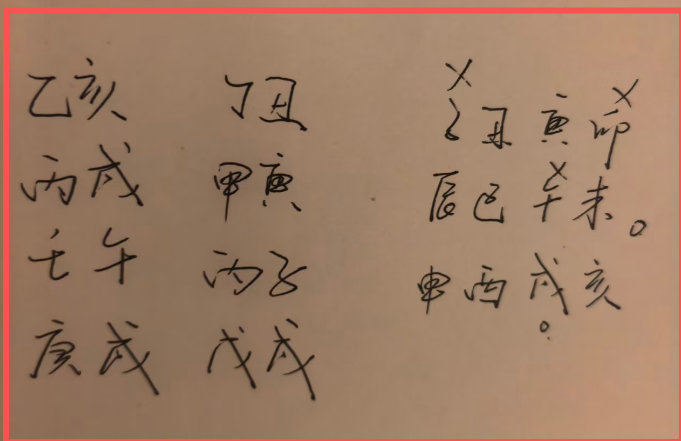 乙亥 丁丑
丙戌 甲寅
壬午 丙子
庚戌 戊戌
子丑寅卯
辰巳午未。
申酉戌亥